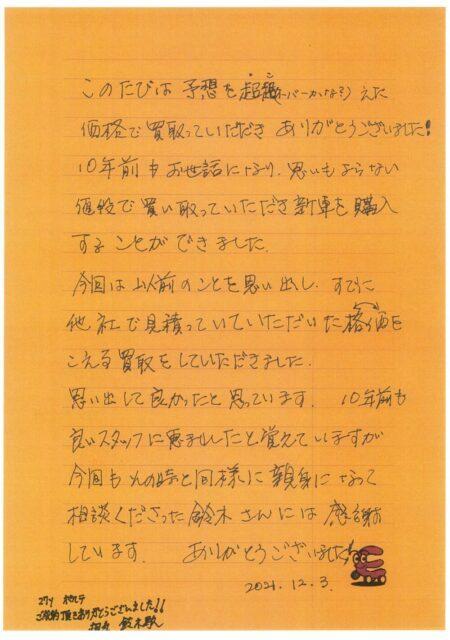 このたびは 予想を超(スーパーかな?)えた
価格で買取っていただき ありがとうございました!
10年前もお世話になり、思いもよらない
値段で買い取っていただき新車を購入
することができました。
今回は以前のことを思い出し、すでに
他社で見積っていていただいた価格を
こえる買取をしていただきました。
思い出して良かったと思っています。 10年前も
良いスタッフに恵まれたと覚えていますが
今回もその時と同様に親身になって
相談くださった鈴木さんには感謝
しています。 ありがとうございました!
2021. 12. 3.
ご契約頂きありがとうございました!!
担当 鈴木